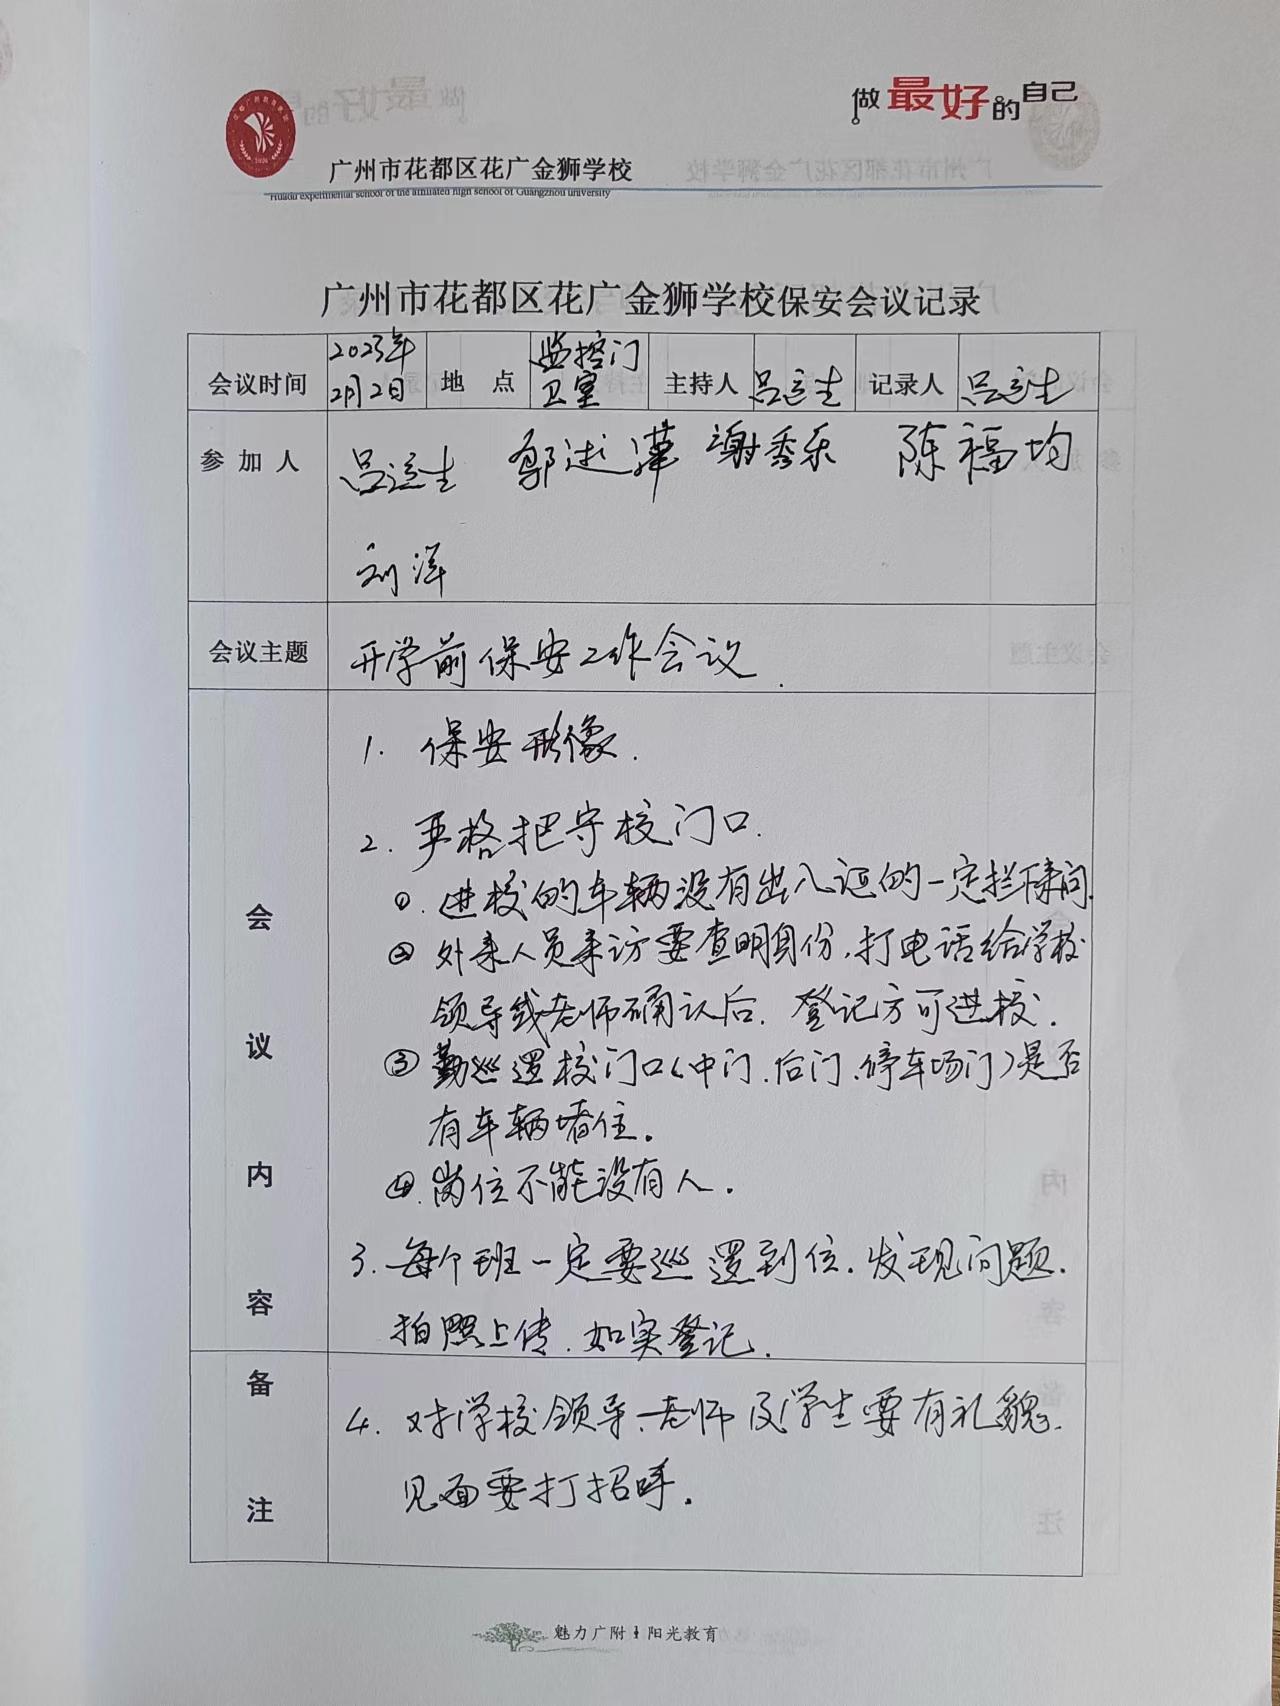 做最好的自己
广州市花都区花广金狮学校
Huadu experimental school of the affiliated high school of Guangzhou university
广州市花都区花广金狮学校保安会议记录
会议时间 2023年2月2日 地点 监控门卫室 主持人 吕运生 记录人 吕运生
参加人 吕运生 郭述 谢秀乐 陈福均
刘洋
会议主题 开学前保安工作会议.
会议内容
1. 保安形像.
2. 严格把守校门口.
①. 进校的车辆没有出入证的一定拦下来问.
② 外来人员来访要查明身份,打电话给学校
领导或老师确认后.登记方可进校.
③ 勤巡逻校门口(中门.后门、停车场门)是否
有车辆堵住。
④.岗位不能没有人.
3.每个班一定要巡逻到位.发现问题.
拍照上传.如实登记.
备注
4. 对学校领导、老师及学生要有礼貌.
见面要打招呼.
魅力广附 阳光教育